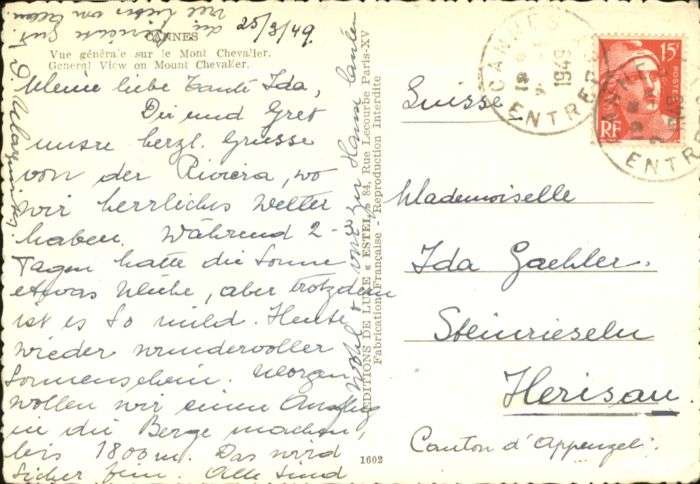 25/3/49.
CANNES
Vue générale sur le Mont Chevalier.
General View on Mount Chevalier.
Meine liebe Tante Ida,
Dir und Gret
unsre herzl. Grüsse
von der Riviera, wo
wir herrliches Wetter
haben. Während 2-
Tagen hatte die Sonne
etwas Mühe, aber trotzdem
ist es so mild. Heute
wieder wundervoller
Sonnenschein. Morgen
wollen wir einen Ausflug
in die Berge machen,
bis 1800 m. Das wird
sicher fein. Alle sind
wohl + zu Hause
EDITIONS DE LUXE « ESTEL » 84, Rue Lecourbe Paris-XV
Fabrication Française - Reproduction Interdite
1602
CANNES
1949
ENTREP
15F
POSTES
RF
CANNES
ENTREP
Suisse
Mademoiselle
Ida Gaehler.
Steinrieseln
Herisau.
Canton d'Appenzel.